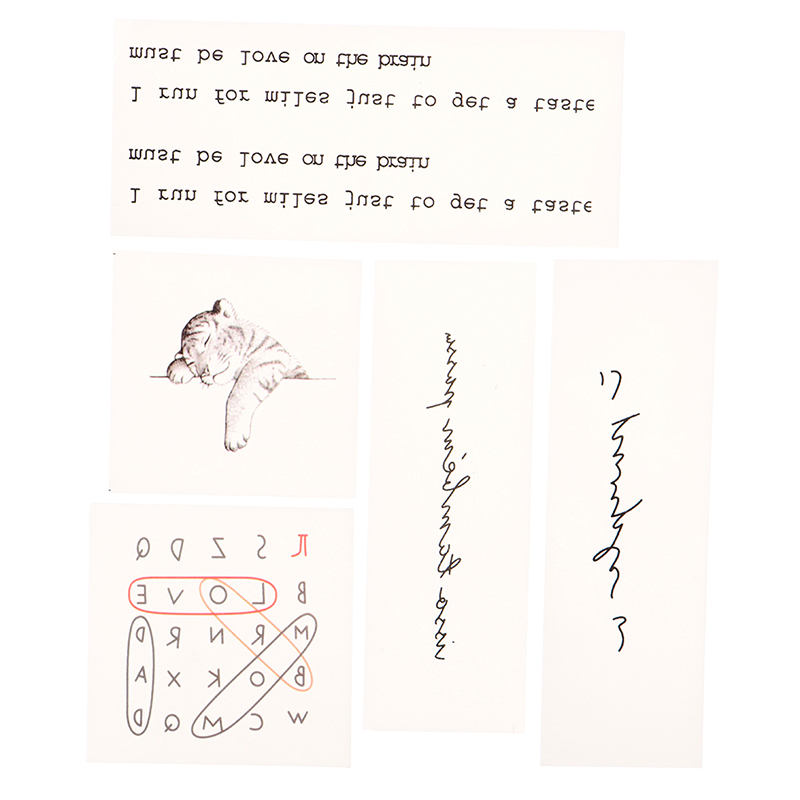 I run for miles just to get a taste
must be love on the brain
I run for miles just to get a taste
must be love on the brain
π S Z D Q
B L O V E
M R N R D
B O K X A
W C M Q D